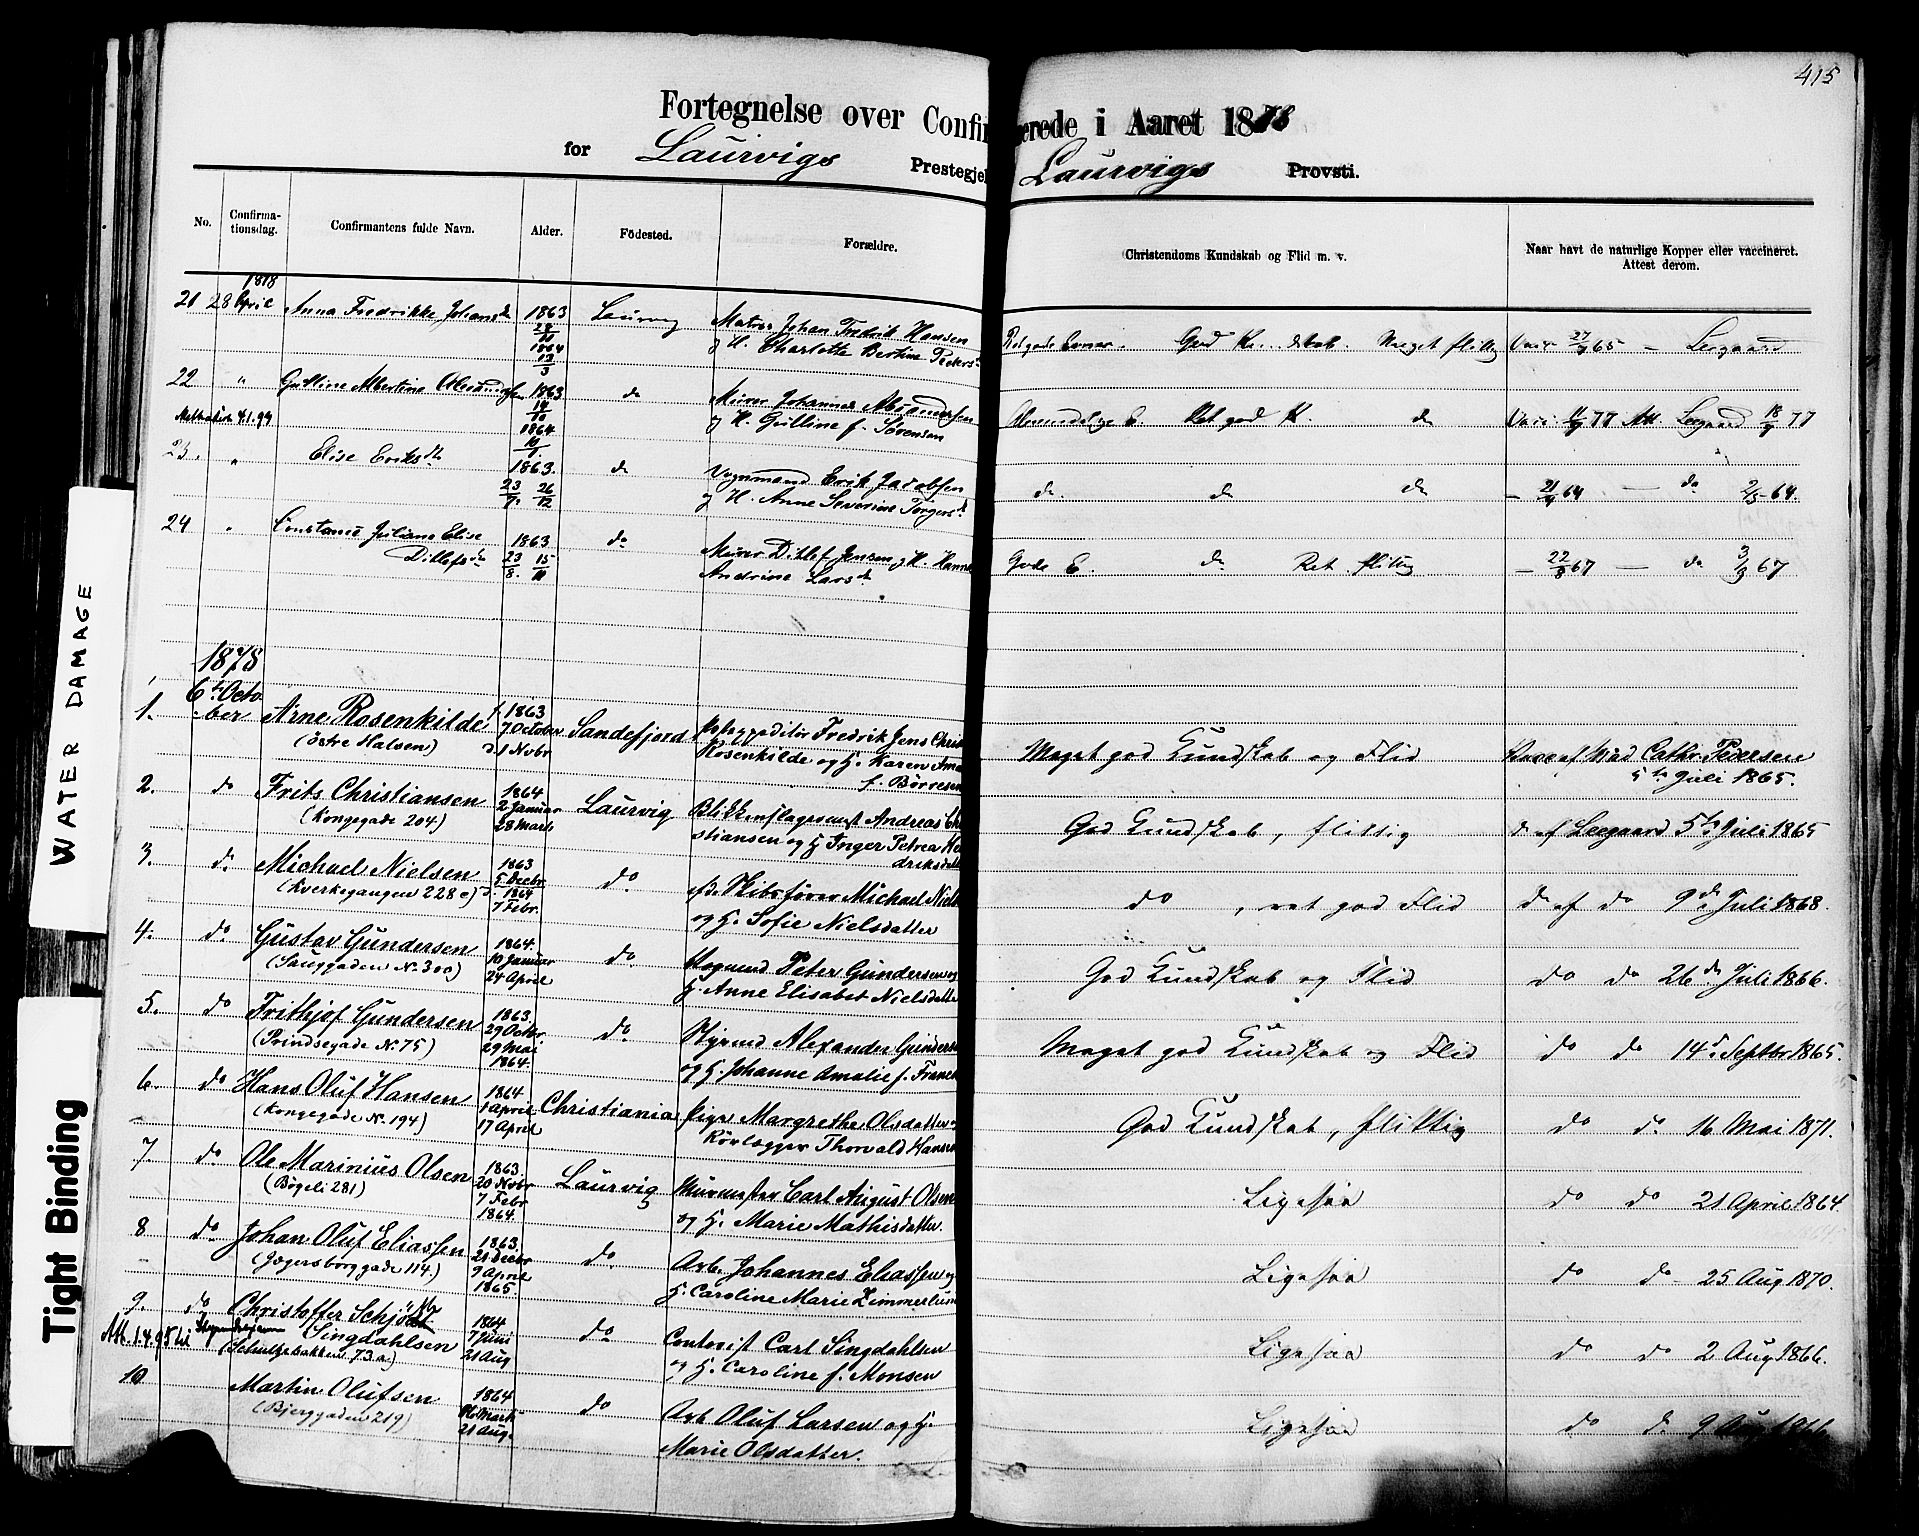 415
Fortegnelse over Confirmerede i Aaret 1878
for Laurvigs Prestegjeld Laurvigs Provsti.
No. Confirmationsdag. Confirmantens fulde Navn. Alder. Födested. Forældre. Christendoms Kundskab og Flid m. v. Naar havt de naturlige Kopper eller vaccineret. Attest derom.
1878
21 28 April Anna Fredrikke Johansdr 1863 Laurvig Matros Johan Fredrik Hansen Meget flittig Vacc 65 — Leegaard
1864 g H. Charlotte Bertine Peders
22 " Gulline Albertine 1863 do Murer Johannes Ret god K. do Vacc. 77 Att. Leegaard 77
1864 g H. Gulline f. Sörensen
23. " Elise Eriksdtr 1863. do Vognmand Erik Jacobsen do. do do — 21/4 64 — do 64.
23 26/12 g H. Anne Severine Torgersdr
24 " Constance Juliane Elise 1863 do Murer Ditlef Jensen g H. Hanna Gode E. do Ret flittig — 22/8 67 — do 3/9 67
Ditlefsdr 23/8. 15/11 Andrine Larsdr
1878
1. 6te October Arne Rosenkilde f. 1863 7 October Sandefjord Fredrik Jens Christ Meget god Kundskab og Flid Vacc af Mad Cathr. Pedersen
(östre Halsen) d. 1 Novbr Rosenkilde og H. Karen Ama 5te Juli 1865.
f. Börresen
2. do Frits Christiansen 1864 2 Januar Laurvig Blikkenslagersvend Andreas Chri God Kundskab, flittig do af Leegaard 5te Juli 1865
(Kongegade 204.) 28 Marts stiansen og H Inger Petrea Hen
driksdatt
3. do Michael Nielsen 1863 5 Decbr do. Skibsförer Michael Niels do, ret god Flid do af do 9de Juli 1868.
(Kverkegangen 228 c) d. 1864 7 Febr. og H. Sofie Nielsdatter
4. do. Gustav Gundersen 1864. 10 Januar do. Vognmd Peter Gundersen og God Kundskab og Flid do do 26de Juli 1866.
24 April H. Anne Elisabet Nielsdatte
5. do Frithjof Gundersen 1863. 29 Octbr do. Styrmd Alexander Gunders Meget god Kundskab og Flid do do 14d. Septbr 1865.
(Prindsegade No. 75) 29 Mai 1864. og H. Johanne Amalie f. Franc
6. do Hans Oluf Hansen 1864 1 April Christiania Pige Margrethe Olsdatter God Kundskab, flittig do do. 16 Mai 1871.
(Kongegade No. 194) 17 April Rörlægger Thorvald Hansen
7. do. Ole Marinius Olsen 1863. 20 Novbr Laurvig Murmester Carl August Olsen Ligesaa do do 21 April 1864.
(Bögeli 281) 7 Febr 1864. og H. Marie Mathisdatter
8 do. Johan Oluf Eliassen 1863. 21 Decbr do. Arb. Johannes Eliassen og Ligesaa do do 25 Aug 1870.
(Jægersborggade 114.) 9 April 1865 H. Caroline Marie Zimmerlum
9. do Christoffer Schjødt 1864 7 Juni do Contorist Carl Singdahlsen Ligesaa do do 2 Aug 1866.
Att. 1.4.95 Singdahlsen 21 Aug og H. Caroline f. Monsen
(Schultzebakken 73 a.)
10 Martin Olufsen 1864 Marts do Arb Oluf Larsen og H. Ligesaa do d. 9 Aug 1866
(Bjerggaden 219) 21 Aug. Marie Olsdatter.
WATER DAMAGE
Tight Binding